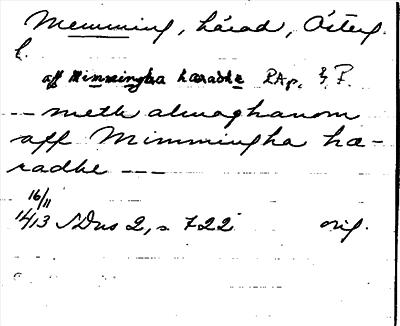 Memming, härad, Österg.
l.
aff Mimmingha hæradhe RAp. & F.
-- meth almoghanom
aff Mimmingha hæ-
radhe ---
16/11
1413 SDns 2, s 722 orig.